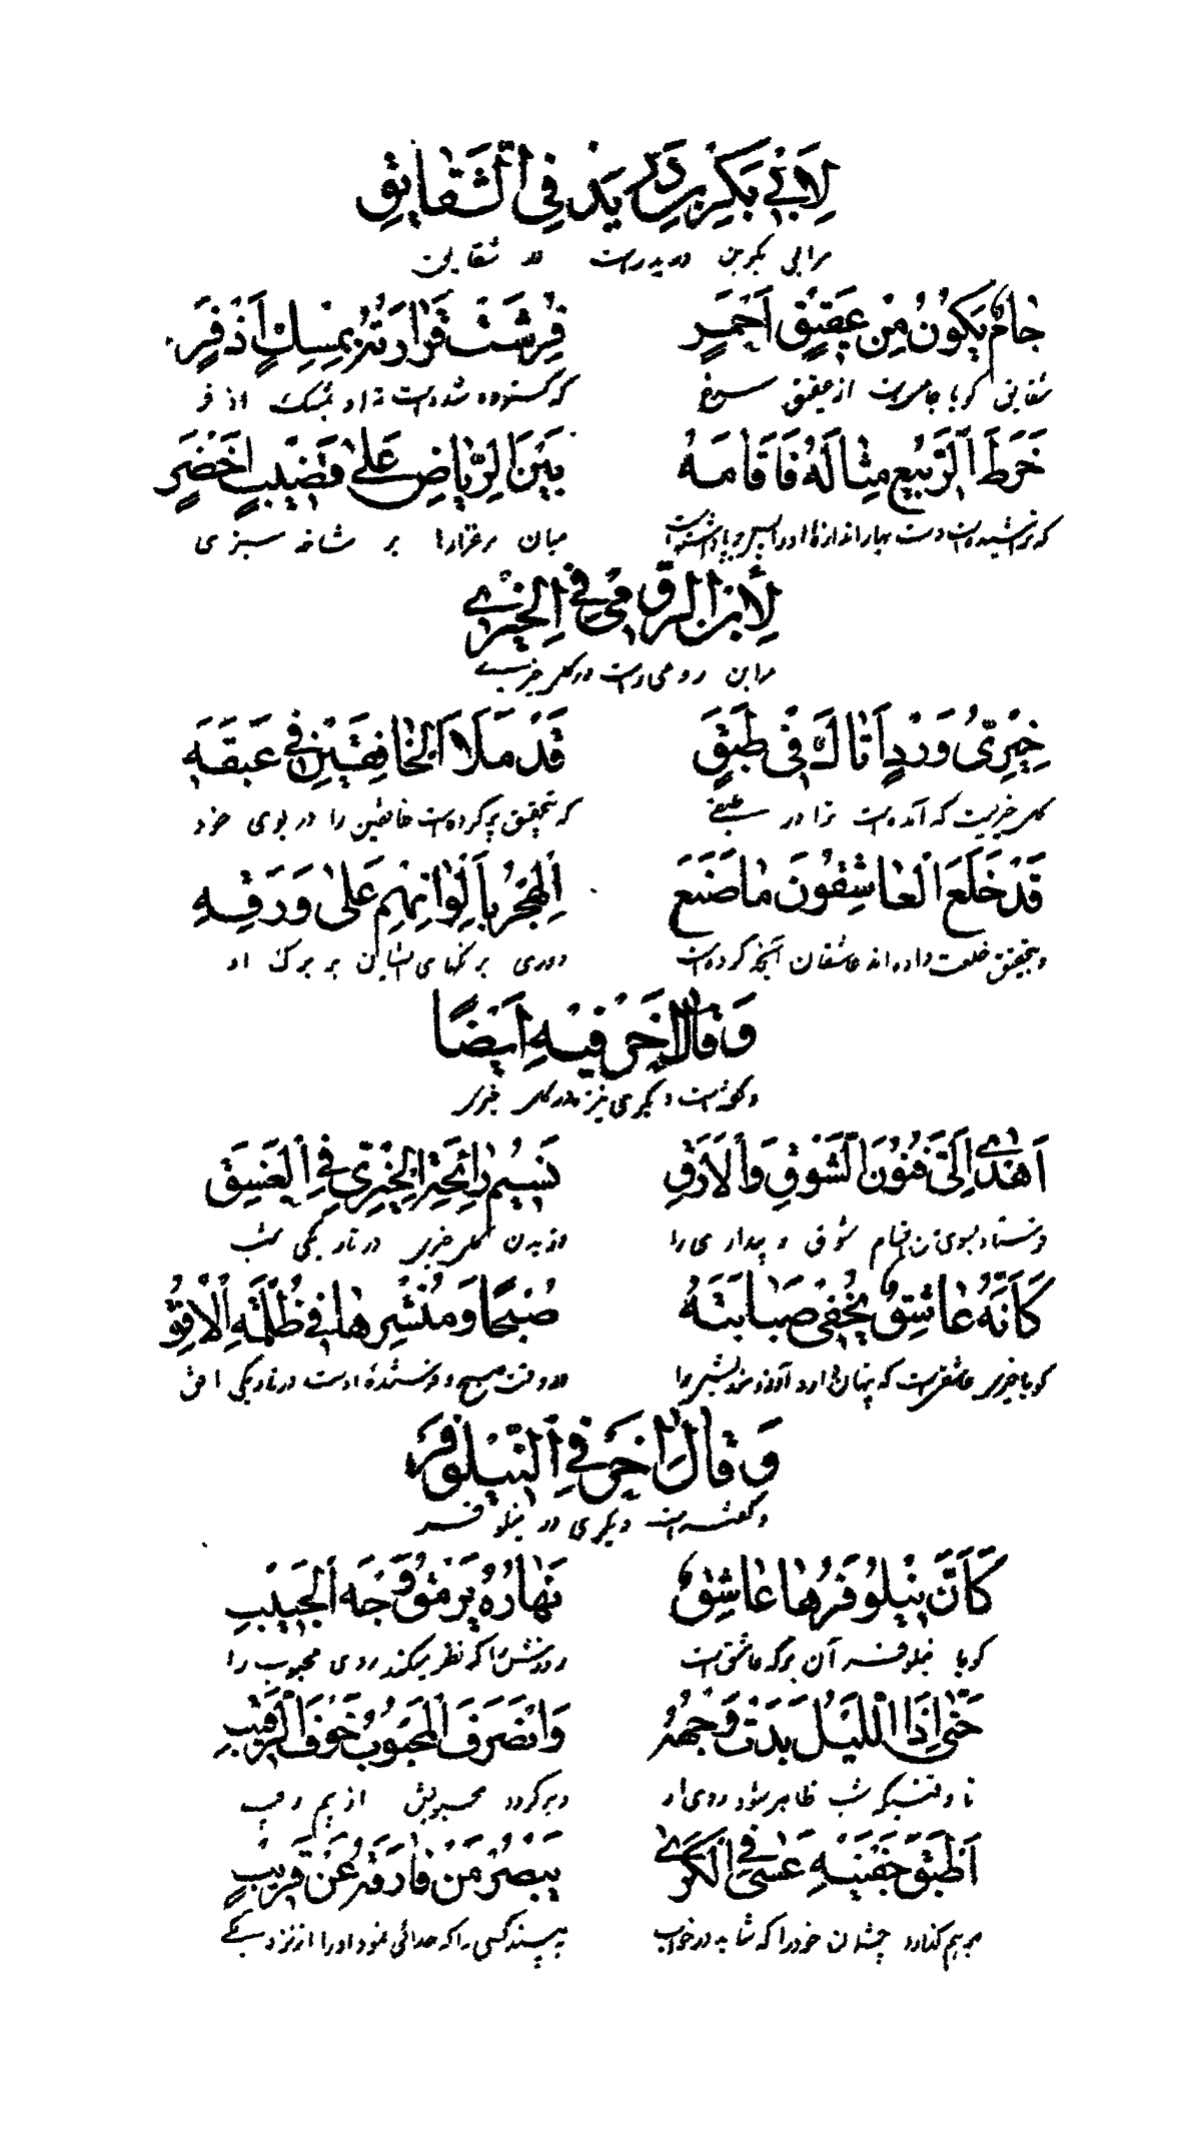 لِأَبِي بَكْرِ بْنِ دُرَيْدٍ فِي الشَّقَايِقِ
مرابی بکر بن دریدراست در شقایق
جَامٌ يَكُونُ مِنْ عَقِيقٍ أَحْمَرٍ فُرِشَتْ قَرَارَتُهُ بِمِسْكٍ أَذْفَرِ
شقایق گویا جامیست از عقیق سرخ که گسترده شده است ته او بمشک اذفر
خَرَطَ الرَّبِيعُ مِثَالَهُ فَأَقَامَهُ بَيْنَ الرِّيَاضِ عَلَى قَضِيبٍ أَخْضَرٍ
که تراشیده است دست بهار میان مرغزارها بر شاخه سبزی
لِأِبْنِ الرُّومِيِّ فِي الْخِيْرِيِّ
مرابن رومی راست در گل خیری
خِيْرِيُّ وَرْدٍ أَتَاكَ فِي طَبَقٍ قَدْ مَلَأَ الْخَافِقَيْنِ فِي عَبَقِهِ
گل خیریست که آمده است ترا در طبقی که بتحقیق پر کرده است خافقین را در بوی خود
قَدْ خَلَعَ الْعَاشِقُونَ مَا صَنَعَ الْهَجْرُ بِأَلْوَانِهِمْ عَلَى وَرَقِهِ
وبتحقیق خلعت داده اند عاشقان آنچه کرده است دوری برنگهای ایشان بر برگ او
وَقَالَ آخَرُ فِيْهِ أَيْضًا
وگفته است دیگری نیز در گل خیری
أَهْدَى إِلَيَّ فُنُونَ الشَّوْقِ وَالْأَرَقِ نَسِيْمُ رَائِحَةِ الْخِيْرِيِّ فِي الْغَسَقِ
شوق و بیداری را وزیدن گل خیری در تاریکی شب
كَأَنَّهُ عَاشِقٌ يُخْفِي صَبَابَتَهُ صُبْحًا وَمُنْشِرُهَا فِي ظُلْمَةِ الْأُفُقِ
گویا خیری عاشقیست که پنهان دارد در وقت صبح در تاریکی افق
وَقَالَ آخَرُ فِي النَّيْلُوفَرِ
وگفته است دیگری در نیلوفر
كَأَنَّ نَيْلُوفَرَهَا عَاشِقٌ نَهَارُهُ يَرْمُقُ وَجْهَ الْحَبِيْبِ
گویا نیلوفر آن برکه عاشق است روزش را که نظر میکند روی محبوب را
حَتَّى إِذَا اللَّيْلُ بَدَتْ وَجْهُهُ وَانْصَرَفَ الْمَحْبُوبُ خَوْفَ الرَّقِيْبِ
تا وقتیکه شب ظاهر شود روی او وبرگردد محبوبش از بیم رقیب
أَطْبَقَ جَفْنَيْهِ عَسَى فِي الْكَرَى يُبْصِرُ مَنْ فَارَقَهُ عَنْ قَرِيْبٍ
برهم گذارد چشمان خودرا که شاید در خواب به بیند کسی را که جدائی نمود اورا از نزدیکی